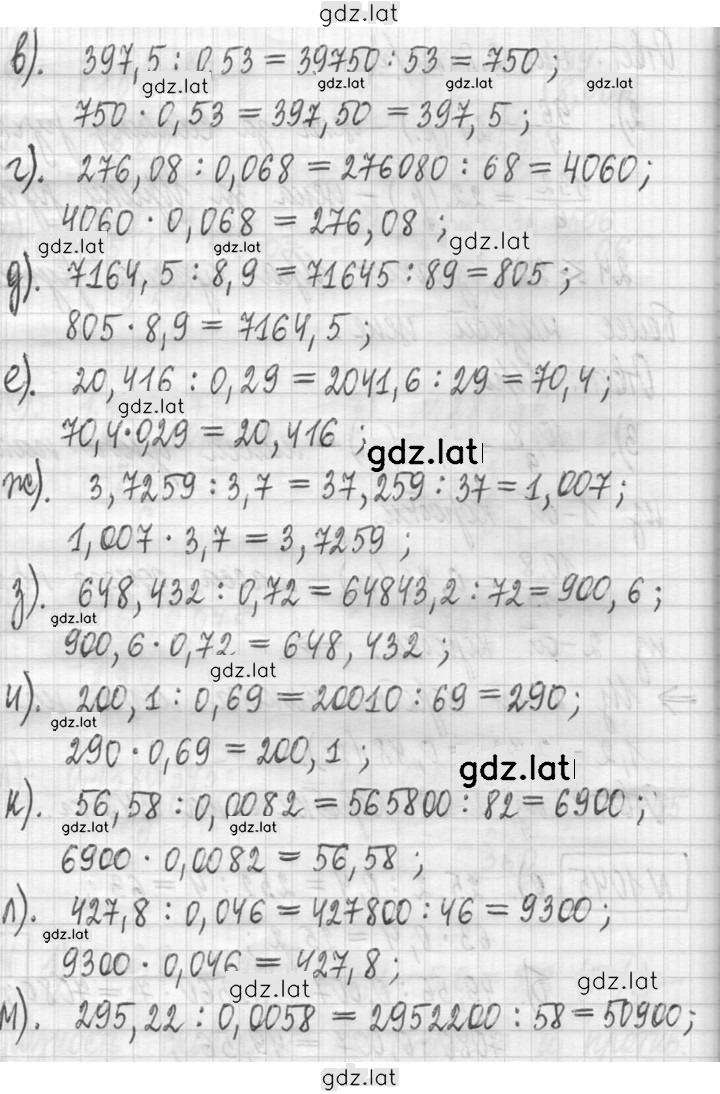 gdz.lat
в). 397,5 : 0,53 = 39750 : 53 = 750 ;
gdz.lat gdz.lat gdz.lat gdz.lat
750 · 0,53 = 397,50 = 397,5 ;
г). 276,08 : 0,068 = 276080 : 68 = 4060;
4060 · 0,068 = 276,08 ;
gdz.lat gdz.lat gdz.lat
д). 7164,5 : 8,9 = 71645 : 89 = 805 ;
805 · 8,9 = 7164,5 ;
е). 20,416 : 0,29 = 2041,6 : 29 = 70,4 ;
gdz.lat
70,4 · 0,29 = 20,416 ;
gdz.lat
ж). 3,7259 : 3,7 = 37,259 : 37 = 1,007 ;
1,007 · 3,7 = 3,7259 ;
з). 648,432 : 0,72 = 64843,2 : 72 = 900,6 ;
gdz.lat
900,6 · 0,72 = 648,432 ;
gdz.lat
и). 200,1 : 0,69 = 20010 : 69 = 290 ;
gdz.lat
290 · 0,69 = 200,1 ;
gdz.lat
к). 56,58 : 0,0082 = 565800 : 82 = 6900 ;
gdz.lat gdz.lat
6900 · 0,0082 = 56,58 ;
л). 427,8 : 0,046 = 427800 : 46 = 9300 ;
gdz.lat
9300 · 0,046 = 427,8 ;
gdz.lat gdz.lat
м). 295,22 : 0,0058 = 2952200 : 58 = 50900 ;
gdz.lat